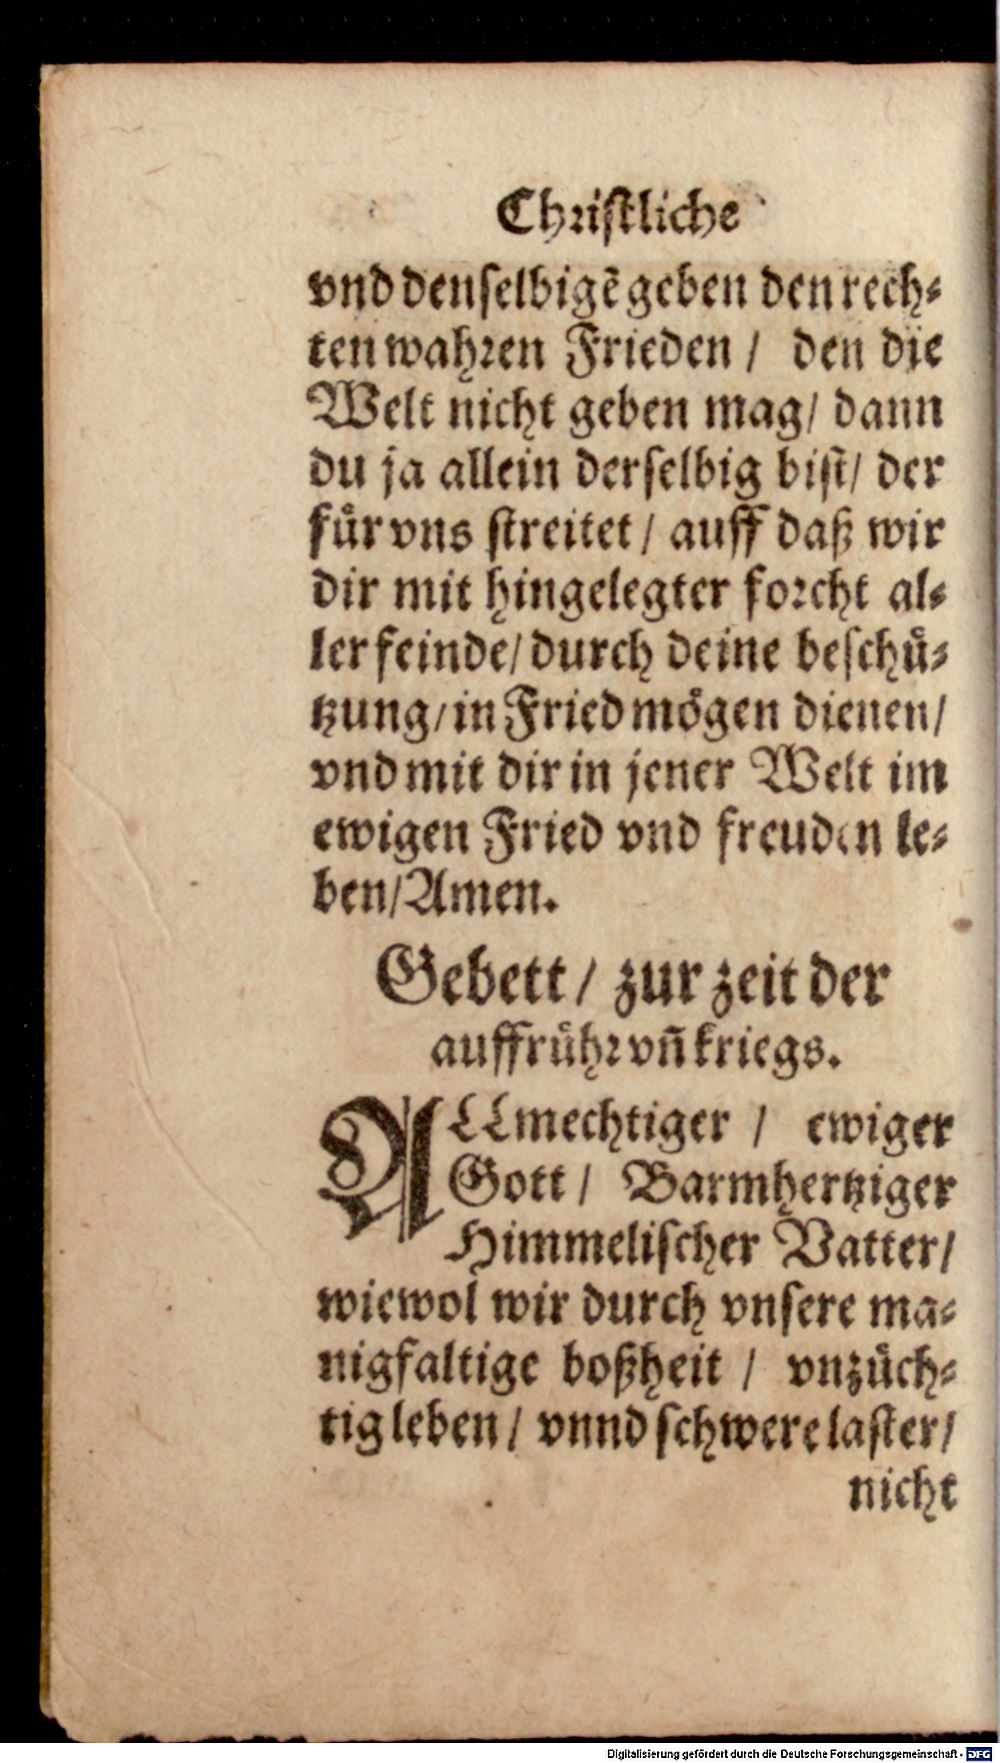 Christliche
vnd denselbigẽ geben den rech⸗
ten wahren Frieden / den die
Welt nicht geben mag / dann
du ja allein derselbig bist / der
fuͤr vns streitet / auff daß wir
dir mit hingelegter forcht al⸗
ler feinde / durch deine beschuͤ⸗
tzung / in Fried moͤgen dienen /
vnd mit dir in jener Welt im
ewigen Fried vnd freuden le⸗
ben / Amen.
Gebett / zur zeit der
auffruͤhr vñ kriegs.
ALLmechtiger / ewiger
Gott / Barmhertziger
Himmelischer Vatter /
wiewol wir durch vnsere ma⸗
nigfaltige boßheit / vnzuͤch⸗
tig leben / vnnd schwere laster /
nicht
Digitalisierung gefördert durch die Deutsche Forschungsgemeinschaft - DFG